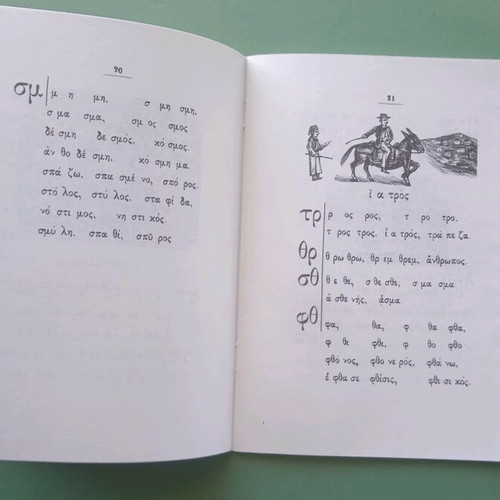 20
σμ
μ η μη, σ μη σμη,
σ μα σμα, σμ ος σμος
δέ σμη δε σμός, κό σμος.
ἀν θο δέ σμη, κό σμη μα.
σπά ζω, σπα σμέ νο, σπό ρος.
στό λος, στύ λος. στα φί δα,
νό στι μος, νη στι κός.
σμύ λη, σπα θί, σπῦ ρος
21
ἰ α τρος
τρ
ρ ος ρος, τ ρο τρο.
τ ρος τρος. ἰ α τρός, τρά πε ζα.
θρ
θ ρω θρω, θρ εμ θρεμ, ἄνθρωπος.
σθ
θ ε θε, σ θε σθε, σ μα σμα
ἀ σθε νής, ἄσμα.
φθ
φα, θα, φ θα φθα,
φ θι φθι, φ θο φθο
φθό νος, φθο νε ρός, φθά νω,
ἔ φθα σε φθίσις, φθι σι κός.